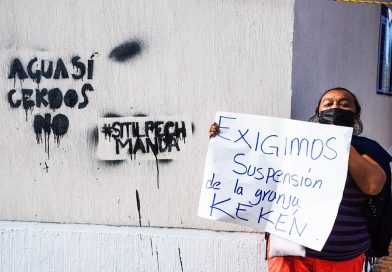 AGUA SÍ
CERDOS
NO
#SITILPECH
MANDA
EXIGIMOS
Suspensión
de la granja
KEKÉN